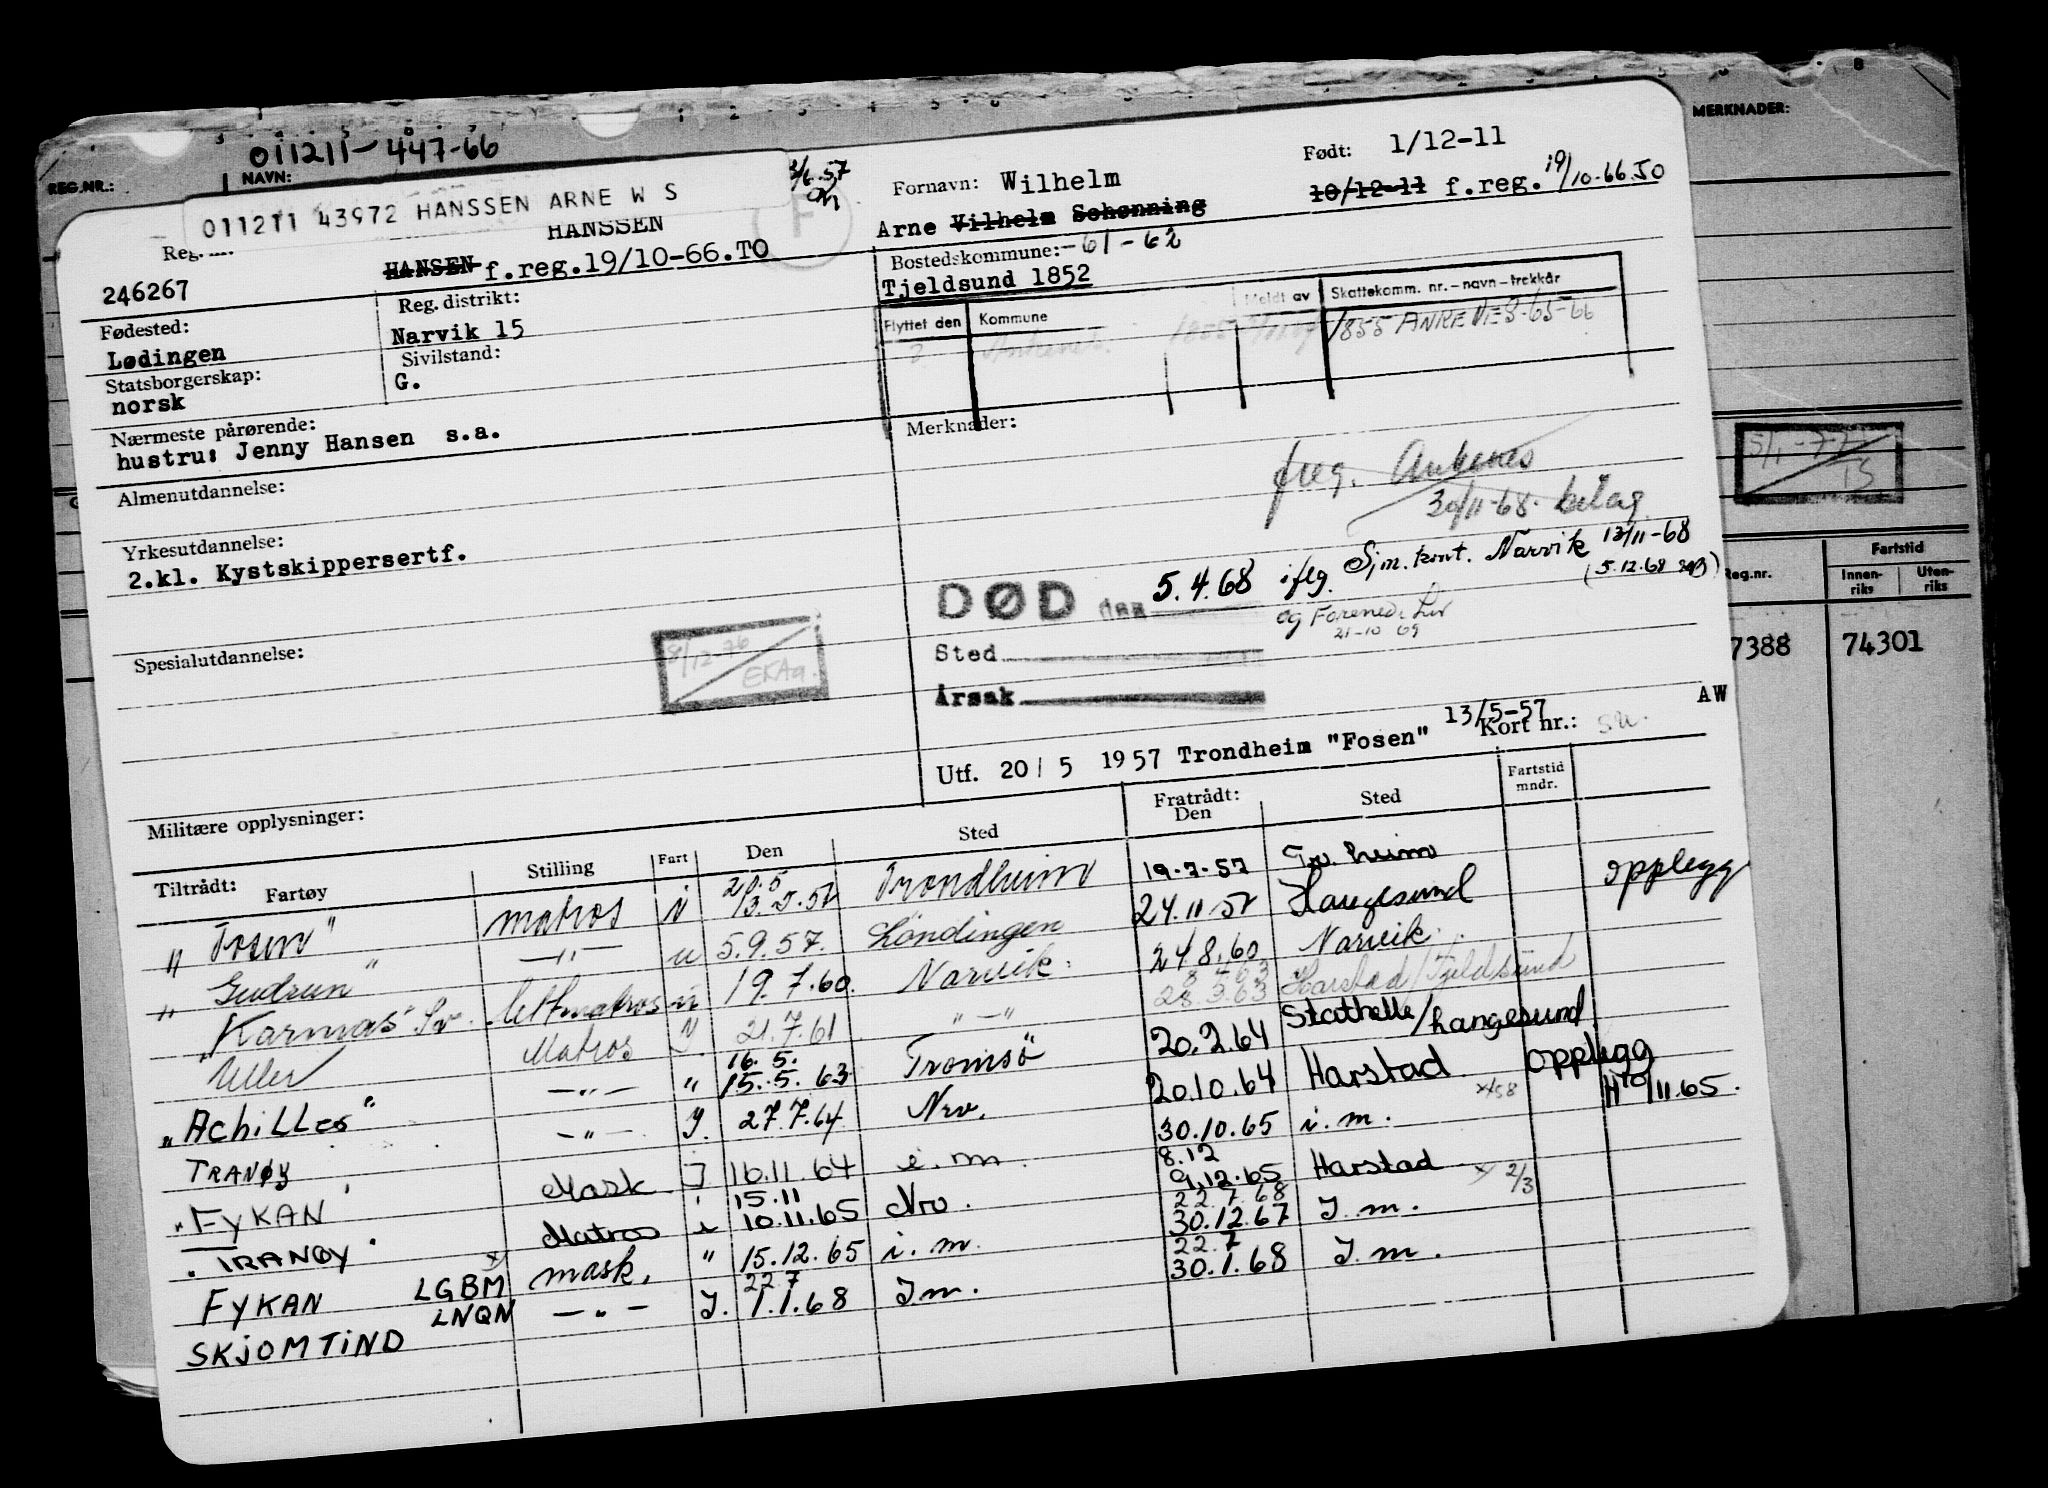 MERKNADER:
011211-447-66
REG.NR.:
NAVN:
011211 43972 HANSSEN ARNE W S
2/6.57
Født: 1/12-11
Fornavn: Wilhelm
10/12-11 f.reg. 19/10-66.TO
Arne Vilhelm Schønning
HANSSEN
Reg. nr.
HANSEN f.reg.19/10-66.TO
246267
Bostedskommune: -61-62
Tjeldsund 1852
Fødested:
Lødingen
Reg. distrikt:
Narvik 15
Flyttet den Kommune Meldt av Skattekomm. nr.-navn-trekkår
1855 ANKENES-65-66
Statsborgerskap:
norsk
Sivilstand:
G.
Nærmeste pårørende:
hustru: Jenny Hansen s.a.
Merknader:
freg. Ankenes
30/11-68. bilag
Almenutdannelse:
Yrkesutdannelse:
2.kl. Kystskippersertf.
DØD den 5.4.68 iflg. Sjm.kont. Narvik 13/11-68
(5.12.68
og Forenede Liv
21-10 69
Sted
Årsak
Spesialutdannelse:
8/12-76
EKAa.
5/1-77
TS
Reg.nr. Fartstid
Innen-riks Uten-riks
7388 74301
AW
13/5-57
Utf. 20/5 1957 Trondheim "Fosen" Kort nr.:
Militære opplysninger:
Tiltrådt: Fartøy Stilling Fart Den Sted Fratrådt: Den Sted Fartstid mndr.
"Fosen" matros N 20.5 13.5.57 Trondheim 19-7-57 Tr.heim
"Gudrun" -"- u 5.9.57. Løndingen 24.11 57 Haugesund opplegg
"Karmas" Lettmatros u 19.7.60. Narvik. 24.8.60 Narvik.
Uller Matros 21.7.61 -"- 8.4.63 28.3.63 Harstad/Tjeldsund
"Achilles" -"- " 16.5. 15.5.63 Tromsø 20.2.64 Stathelle/haugesund
TRANØY -"- J. 27.7.64 Nrv. 20.10.64 Harstad opplegg
"FYKAN" Mask J 16.11.64 i.m. 30.10.65 i.m. 11.65.
"TRANØY" Matros i 15.11 10.11.65 Nrv. 8.12 9.12.65 Harstad
FYKAN LGBM mask. " 15.12.65 i.m. 22.7.68 30.12.67 J.m. 2/3
SKJOMTIND LNQN -"- J. 22.7 1.1.68 J.m. 22.7 30.1.68 J.m.